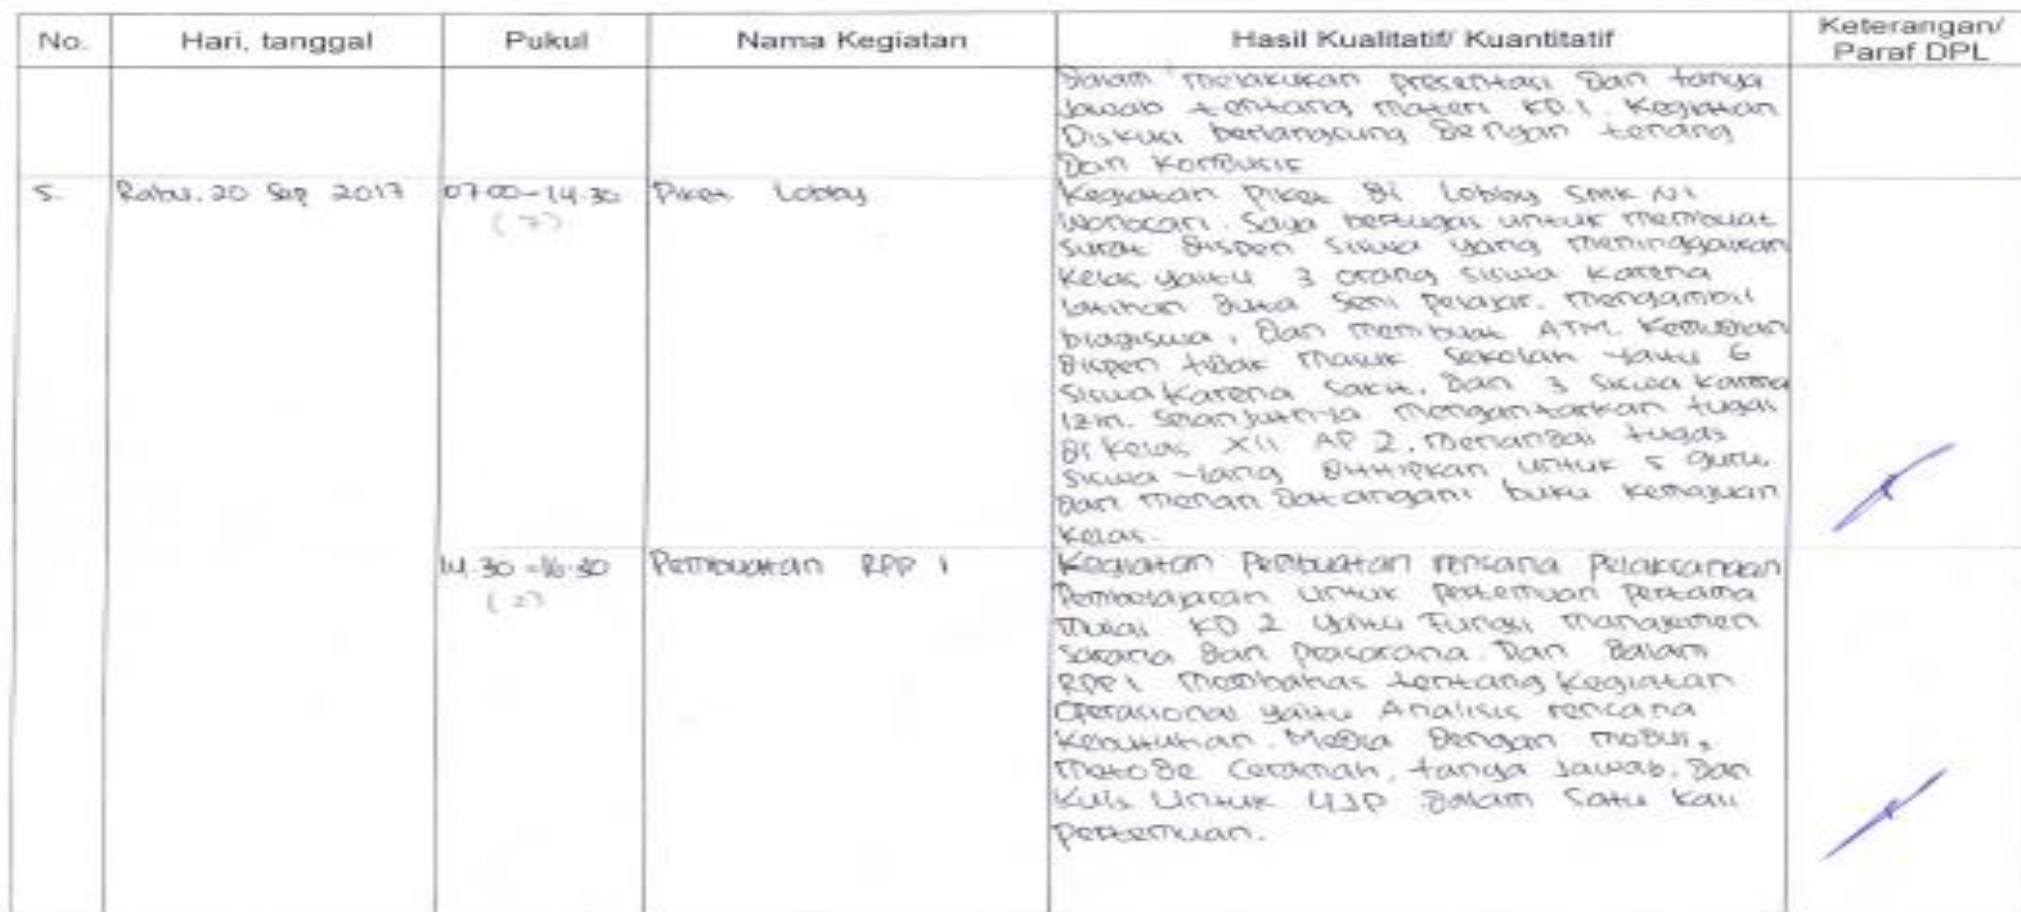 No. Hari, tanggal Pukul Nama Kegiatan Hasil Kualitatif/ Kuantitatif Keterangan/ Paraf DPL
Dalam melakukan presentasi Dan tanya
Jawab tentang materi KD.1. Kegiatan
Diskusi berlangsung Dengan tenang
Dan Kondusif
5. Rabu, 20 Sep 2017 07.00-14.30 Piket Lobby
(7)
Kegiatan Piket Di Lobby SMK N 1
Wonosari. Saya bertugas untuk membuat
Surat Dispen Siswa yang meninggalkan
Kelas yaitu 3 orang siswa Karena
latihan Duta Seni pelajar, mengambil
biasiswa, Dan membuat ATM. Kemudian
Dispen tidak masuk Sekolah yaitu 6
Siswa Karena Sakit, Dan 3 Siswa Karena
Izin. Selanjutnya mengantarkan tugas
Di Kelas XII AP 2, menandai tugas
Siswa yang Dititipkan untuk 5 guru
Dan menan Datangani buku Kemajuan
Kelas.
14.30-16.30 Pembuatan RPP 1
(2)
Kegiatan Pembuatan rencana Pelaksanaan
Pembelajaran untuk Pertemuan Pertama
Mulai KD 2 yaitu Fungsi manajemen
Sarana Dan Prasarana. Dan Dalam
RPP 1 membahas tentang Kegiatan
Operasional yaitu Analisis rencana
Kebutuhan. Media Dengan moDul,
MetoDe Ceramah, tanya Jawab, Dan
Kuis Untuk 4JP Dalam Satu Kali
Pertemuan.